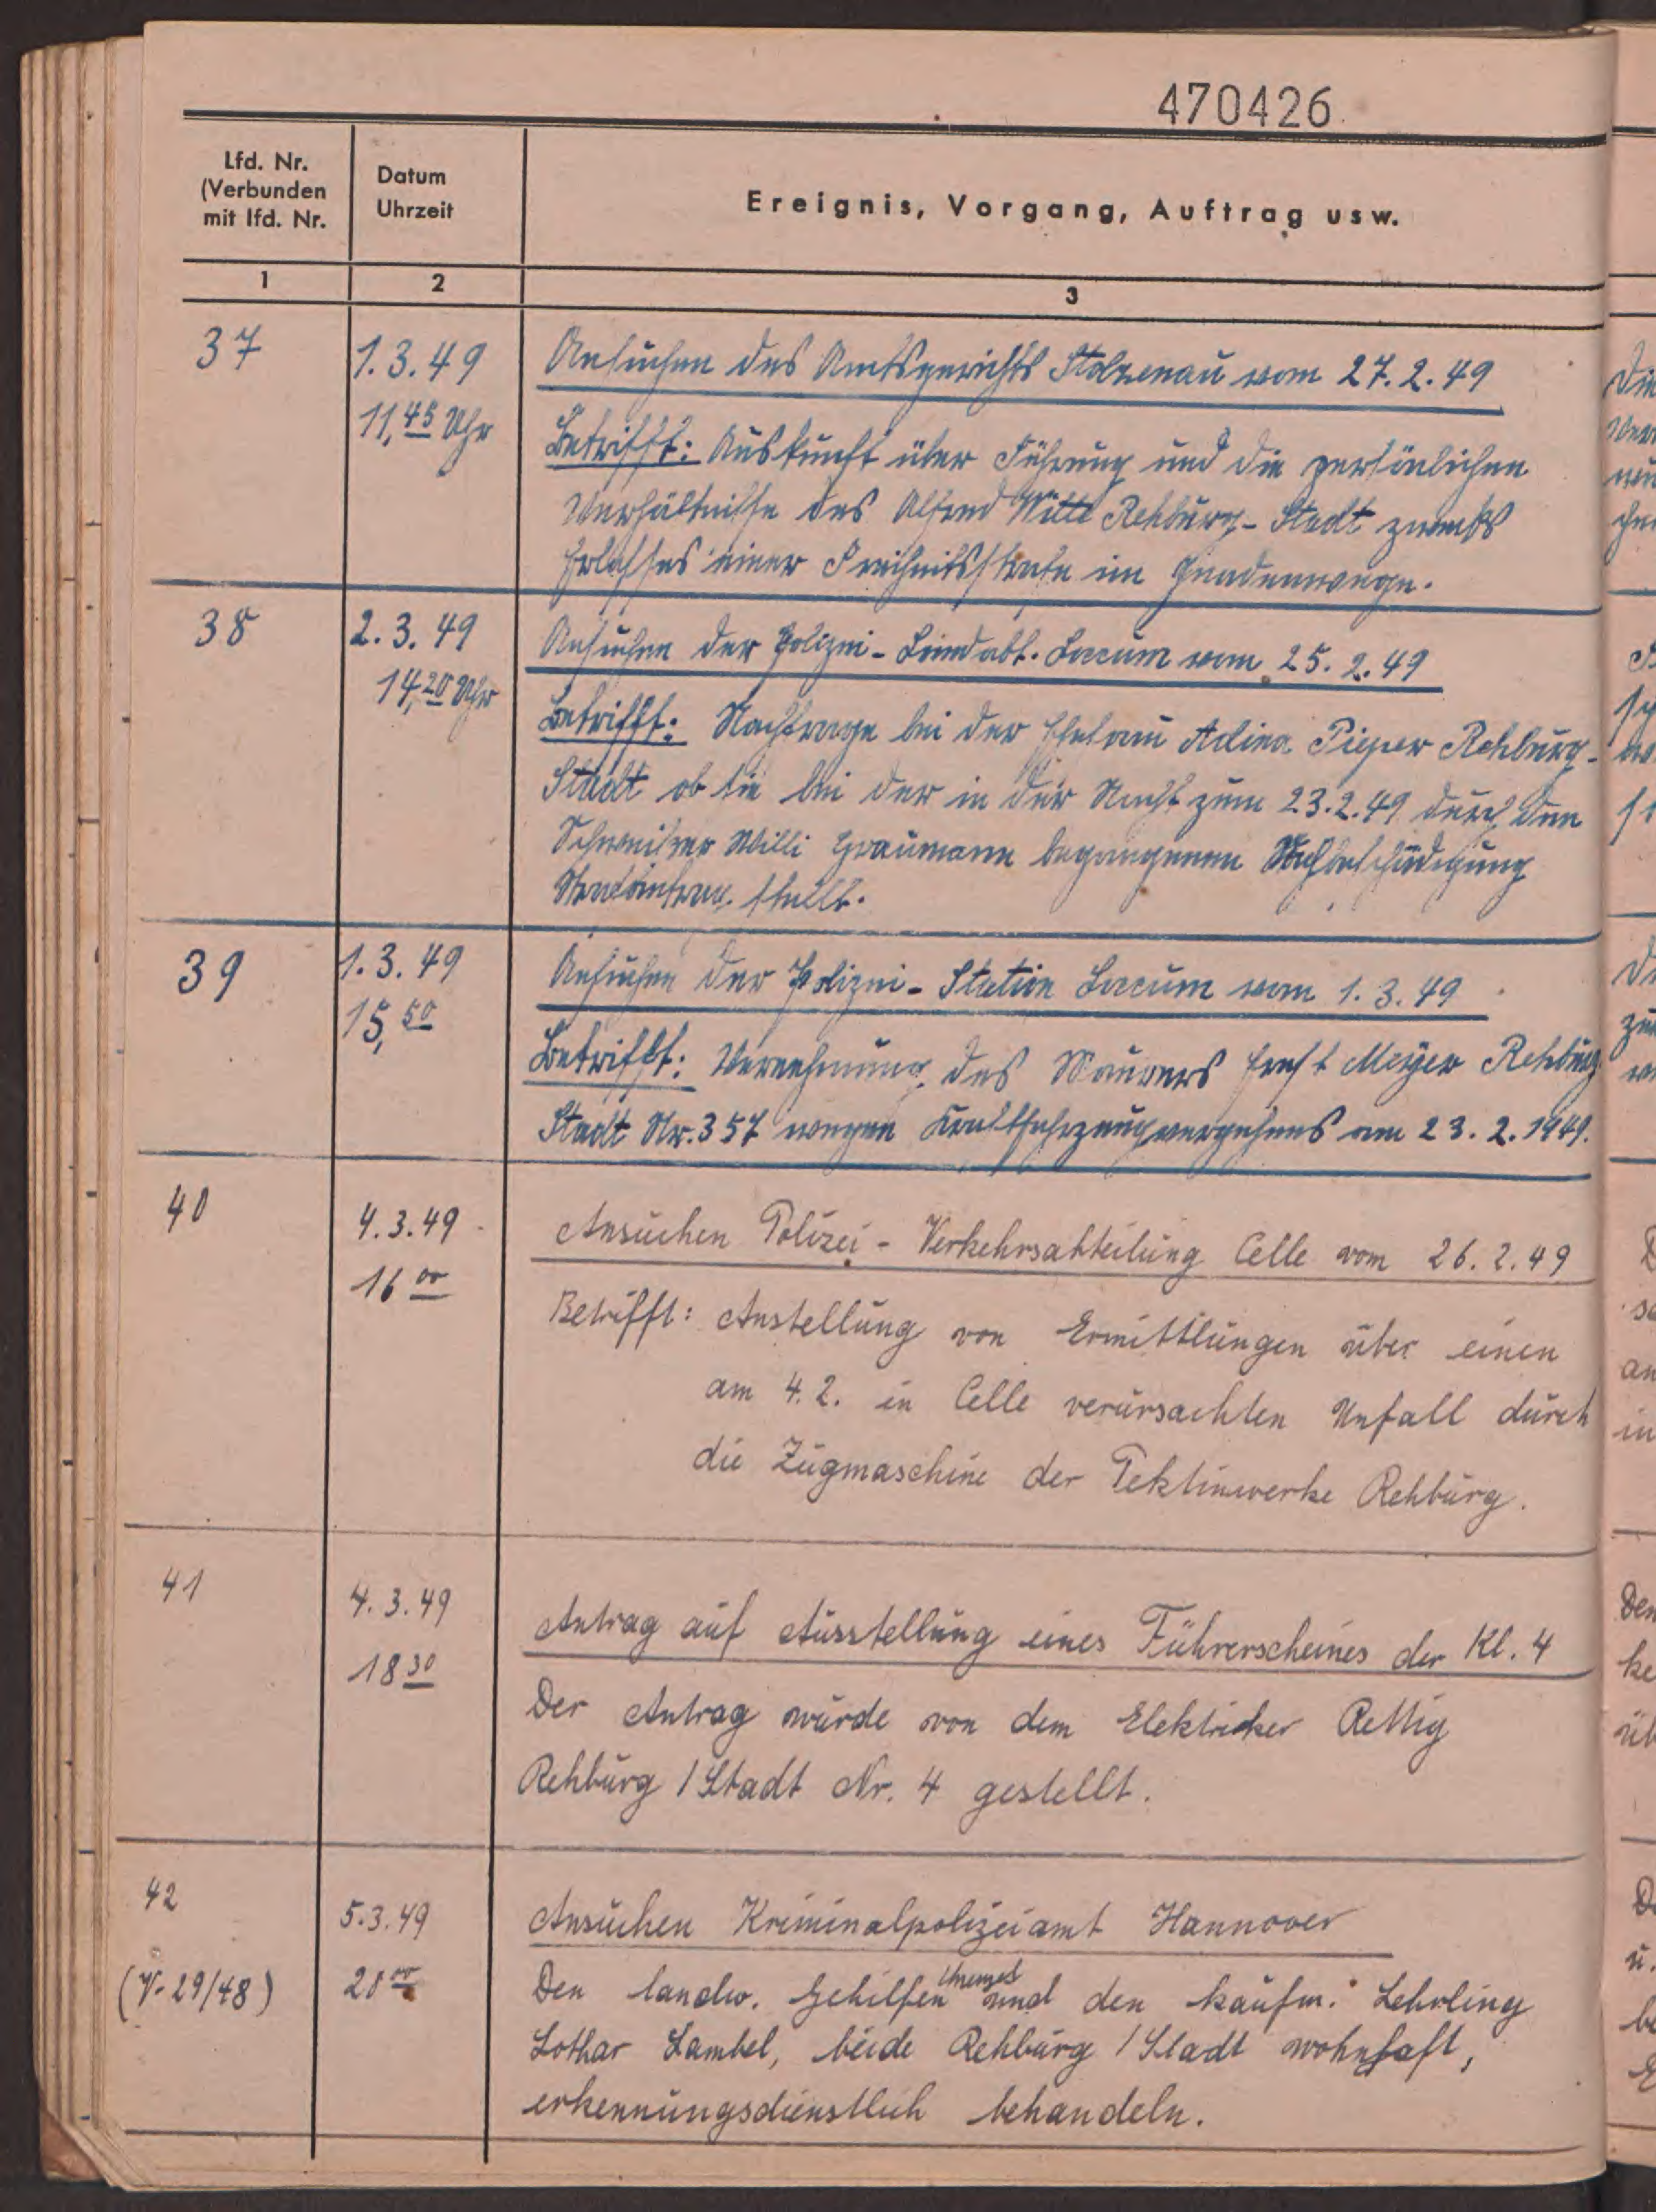 470426
Lfd. Nr.
(Verbunden
mit lfd. Nr.
Datum
Uhrzeit
Ereignis, Vorgang, Auftrag usw.
1
2
3
37
1.3.49
11,45 Uhr
Ansuchen des Amtsgerichts Stolzenau vom 27.2.49
Betrifft: Auskunft über Führung und die persönlichen
Verhältnisse des Alfred Witte Rehburg-Stadt zwecks
Erlasses einer Freiheitsstrafe im Gnadenwege.
38
2.3.49
14,20 Uhr
Ansuchen der Polizei- Loccum vom 25.2.49
Betrifft: Nachfrage bei der Ehefrau Adina Pieper Rehburg-
Stadt ob sie bei der in der Nacht zum 23.2.49 durch den
Schweitzer Willi Graumann begangenen Sachbeschädigung
Strafantrag stellt.
39
1.3.49
15,50
Ansuchen der Polizei-Station Loccum vom 1.3.49
Betrifft: Vernehmung des Maurers Ernst Meyer Rehburg
Stadt Nr. 357 wegen Kraftfahrzeugvergehens am 23.2.1949.
40
4.3.49
16 00
Ansuchen Polizei-Verkehrsabteilung Celle vom 26.2.49
Betrifft: Anstellung von Ermittlungen über einen
am 4.2. in Celle verursachten Unfall durch
die Zugmaschine der Pektinwerke Rehburg.
41
4.3.49
18 30
Antrag auf Ausstellung eines Führerscheines der Kl. 4
Der Antrag wurde von dem Elektriker Rettig
Rehburg/Stadt Nr. 4 gestellt.
42
(V-29/48)
5.3.49
20 00
Ansuchen Kriminalpolizeiamt Hannover
Den landw. Gehilfen und den kaufm. Lehrling
Lothar Lambel, beide Rehburg/Stadt wohnhaft,
erkennungsdienstlich behandeln.